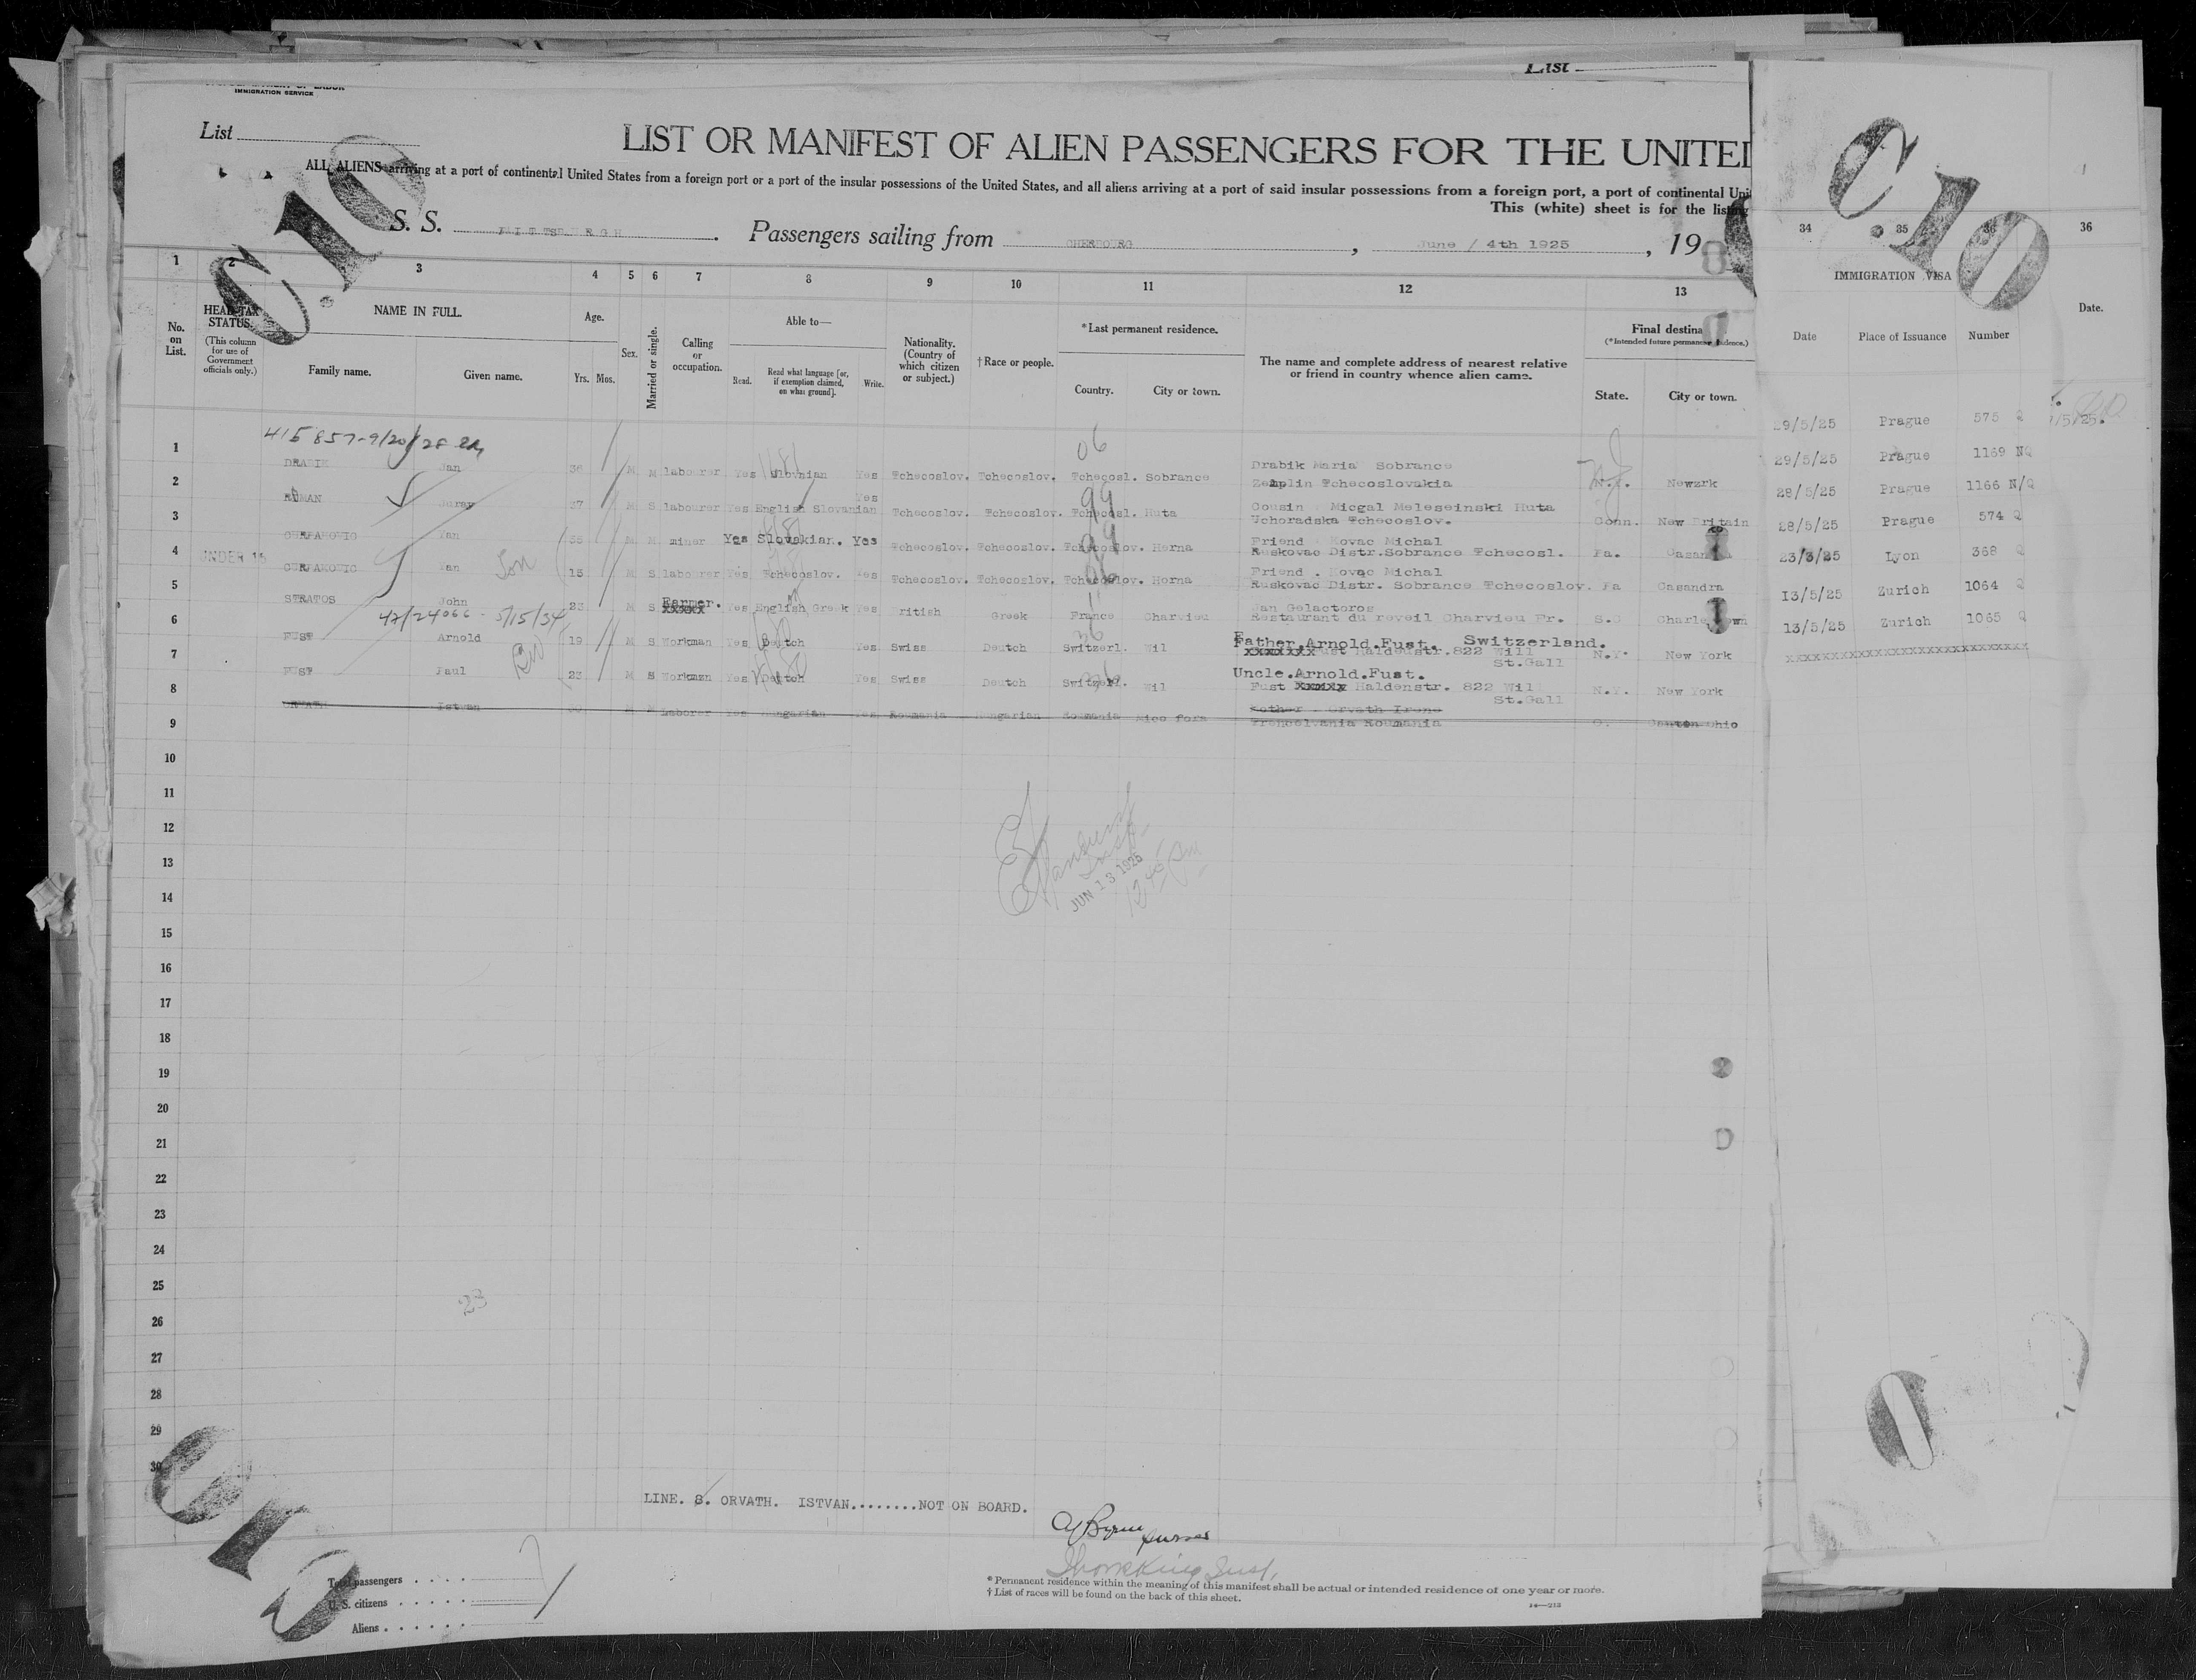 List
IMMIGRATION SERVICE
List
LIST OR MANIFEST OF ALIEN PASSENGERS FOR THE UNITED
ALL ALIENS arriving at a port of continental United States from a foreign port or a port of the insular possessions of the United States, and all aliens arriving at a port of said insular possessions from a foreign port, a port of continental Uni
This (white) sheet is for the listing
C.10
C.10
S. S. PITTSBURGH. Passengers sailing from CHERBOURG, June / 4th 1925, 19
1 2 3 4 5 6 7 8 9 10 11 12 13
34 35 36 36
IMMIGRATION VISA
Date Place of Issuance Number Date.
No. on List.
HEAD-TAX STATUS.
(This column for use of Government officials only.)
NAME IN FULL.
Family name. Given name.
Age.
Yrs. Mos.
Sex.
Married or single.
Calling or occupation.
Able to—
Read. Read what language [or, if exemption claimed, on what ground]. Write.
Nationality. (Country of which citizen or subject.)
†Race or people.
*Last permanent residence.
Country. City or town.
The name and complete address of nearest relative or friend in country whence alien came.
Final destina
(*Intended future permanent
State. City or town.
415857-9/20/28
06
1 DRABIK Jan 36 M M labourer Yes Slovnian Yes Tchecoslov. Tchecoslov. Tchecosl. Sobrance Drabik Maria Sobrance
Zemplin Tchecoslovakia N.J. Newark
2 Juray 37 M S labourer Yes English Slovanian Yes Tchecoslov. Tchecoslov. Tchecosl. Huta Cousin Micgal Meleseinski Huta
99
Uchoradska Tchecoslov. Conn. New Britain
3 Yan M M miner Yes Slovakian. Yes Tchecoslov. Tchecoslov. Tchecoslov. Horna Friend Kovac Michal
Ruskovac Distr. Sobrance Tchecosl. Pa. Casandra
4 UNDER 16 Yan Son 15 M S labourer Yes Tchecoslov. Yes Tchecoslov. Tchecoslov. Tchecoslov. Horna Friend . Kovac Michal
Ruskovac Distr. Sobrance Tchecoslov. Pa Casandra
5 STRATOS John 23 M S Farmer. xxxxx Yes English Greek Yes ritish Greek France Charvieu Jan Gelactoros
Restaurant du reveil Charvieu Fr. S.C Charlestown
42/24066 - 5/15/34
6 FUST Arnold 19 M S Workman Yes Deutch Yes Swiss Deutch Switzerl. Wil Father.Arnold.Fust. Switzerland.
xxxxxxx Fust Haldenstr.822 Will N.Y. New York
St.Gall
7 FUST Paul 23 M S Workman Yes Deutch Yes Swiss Deutch Switzerl. Wil Uncle.Arnold.Fust.
Fust xxxxx Haldenstr. 822 Wil N.Y. New York
St.Gall
8 Istvan M Laborer Yes Hungarian Yes Roumania Hungarian Roumania Mother Orvath Irene
Roumania O. Canton Ohio
29/5/25 Prague 575 Q
29/5/25 Prague 1169 NQ
28/5/25 Prague 1166 N/Q
28/5/25 Prague 574 Q
23/3/25 Lyon 368 Q
13/5/25 Zurich 1064 Q
13/5/25 Zurich 1065 Q
xxxxxxxxxxxxxxxxxxxxxxxxxxx
9
10
11
12
JUN 13 1925
12 40 PM
13
14
15
16
17
18
19
20
21
22
23
24
25
23
26
27
28
29
30
LINE. 8. ORVATH. ISTVAN........NOT ON BOARD.
Purser
Total passengers . . . .
U. S. citizens . . . . .
Aliens . . . . . .
* Permanent residence within the meaning of this manifest shall be actual or intended residence of one year or more.
† List of races will be found on the back of this sheet.
14—213